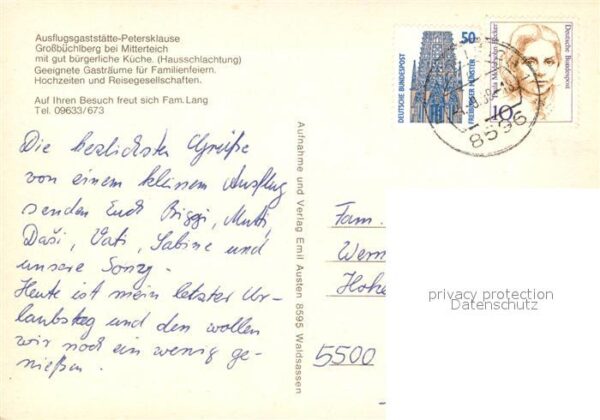 Ausflugsgaststätte-Petersklause
Großbüchlberg bei Mitterteich
mit gut bürgerliche Küche. (Hausschlachtung)
Geeignete Gasträume für Familienfeiern.
Hochzeiten und Reisegesellschaften.
Auf Ihren Besuch freut sich Fam. Lang
Tel. 09633/673
Die herzlichsten Grüße
von einem kleinen Ausflug
senden Euch Biggi, Mutti,
Vati, Sabine und
unsere
Heute ist mein letzter Ur-
laubstag und den wollen
wir noch ein wenig ge-
nießen.
Aufnahme und Verlag Emil Austen 8595 Waldsassen
50
DEUTSCHE BUNDESPOST
FREIBURGER MÜNSTER
10
Paula Modersohn-Becker
Deutsche Bundespost
8596
Fam.
Wern
Hohe
5500
privacy protection
Datenschutz